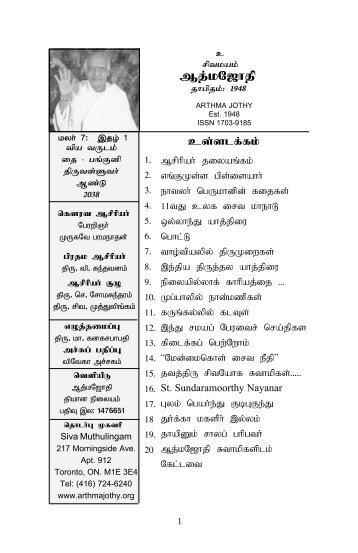 உ
சிவமயம்
ஆத்மஜோதி
தாபிதம்: 1948
ARTHMA JOTHY
Est. 1948
ISSN 1703-9185
மலர் 7: இதழ் 1
விய வருடம்
தை - பங்குனி
திருவள்ளுவர்
ஆண்டு
2038
கௌரவ ஆசிரியர்
பேரறிஞர்
முருகவே பரமநாதன்
பிரதம ஆசிரியர்
திரு. வி. கந்தவனம்
ஆசிரியர் குழு
திரு. செ. சோமசுந்தரம்
திரு. சிவ. முத்துலிங்கம்
எழுத்தமைப்பு
திரு. மா. கனகசபாபதி
அச்சுப் பதிப்பு
விவேகா அச்சகம்
வெளியீடு
ஆத்மஜோதி
தியான நிலையம்
பதிவு இல: 1476651
தொடர்பு முகவரி
Siva Muthulingam
217 Morningside Ave.
Apt. 912
Toronto, ON. M1E 3E4
Tel: (416) 724-6240
www.arthmajothy.org
உள்ளடக்கம்
1. ஆசிரியர் தலையங்கம்
2. எங்குமுள்ள பிள்ளையார்
3. நாவலர் பெருமானின் கதைகள்
4. 11வது உலக சைவ மாநாடு
5. ஒல்லாந்து யாத்திரை
6. பொட்டு
7. வாழ்வியலில் திருமுறைகள்
8. இந்திய திருத்தல யாத்திரை
9. நிலையில்லாக் காரியத்தை ...
10. முப்பாலில் நான்மணிகள்
11. கருங்கல்லில் கடவுள்
12. இந்து சமயப் பேரவைச் செய்திகள
13. கிடைக்கப் பெற்றோம்
14. “மேன்மைகொள் சைவ நீதி”
15. தவத்திரு சிவயோக சுவாமிகள்.....
16. St. Sundaramoorthy Nayanar
17. புலம் பெயர்ந்து குடிபுகுந்து
18 துர்க்கா மகளிர் இல்லம்
19. தாயினும் சாலப் பரிபவர்
20 ஆத்மஜோதி சுவாமிகளிடம்
கேட்டவை
1